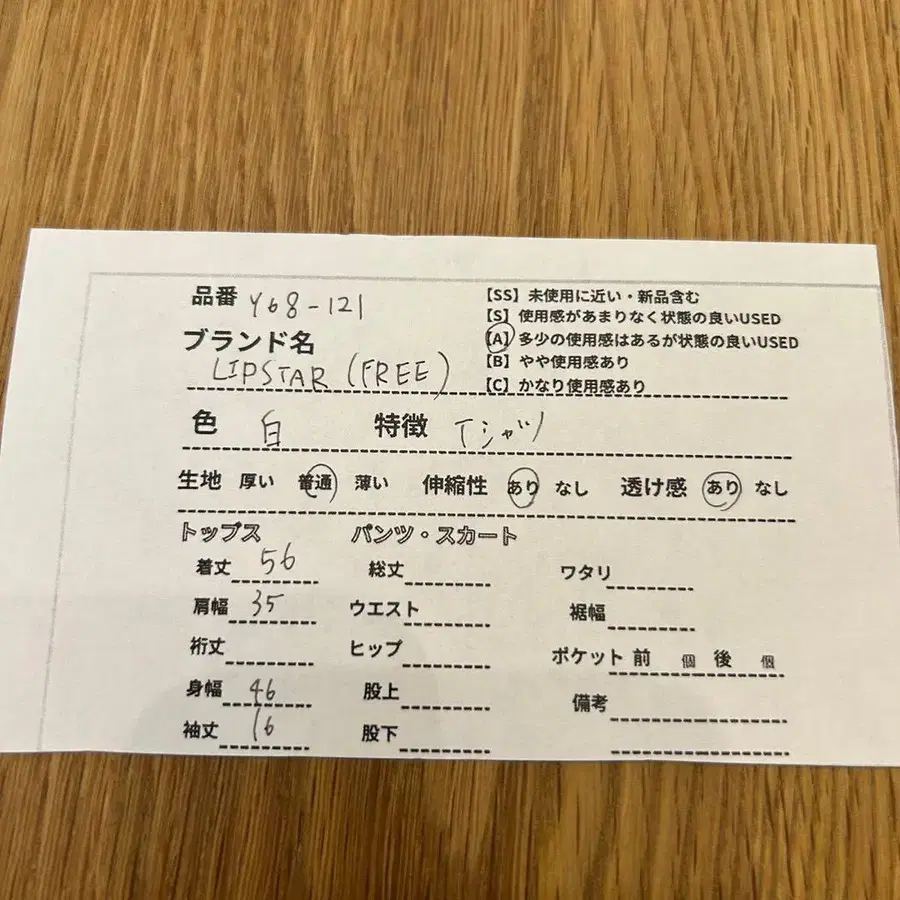 品番 Y68-121
【SS】未使用に近い・新品含む
【S】使用感があまりなく状態の良いUSED
【A】多少の使用感はあるが状態の良いUSED
【B】やや使用感あり
【C】かなり使用感あり
ブランド名
LIPSTAR (FREE)
色 白 特徴 Tシャツ
生地 厚い 普通 薄い 伸縮性 あり なし 透け感 あり なし
トップス パンツ・スカート
着丈 56 総丈 ワタリ
肩幅 35 ウエスト 裾幅
裄丈 ヒップ ポケット 前 個 後 個
身幅 46 股上 備考
袖丈 16 股下